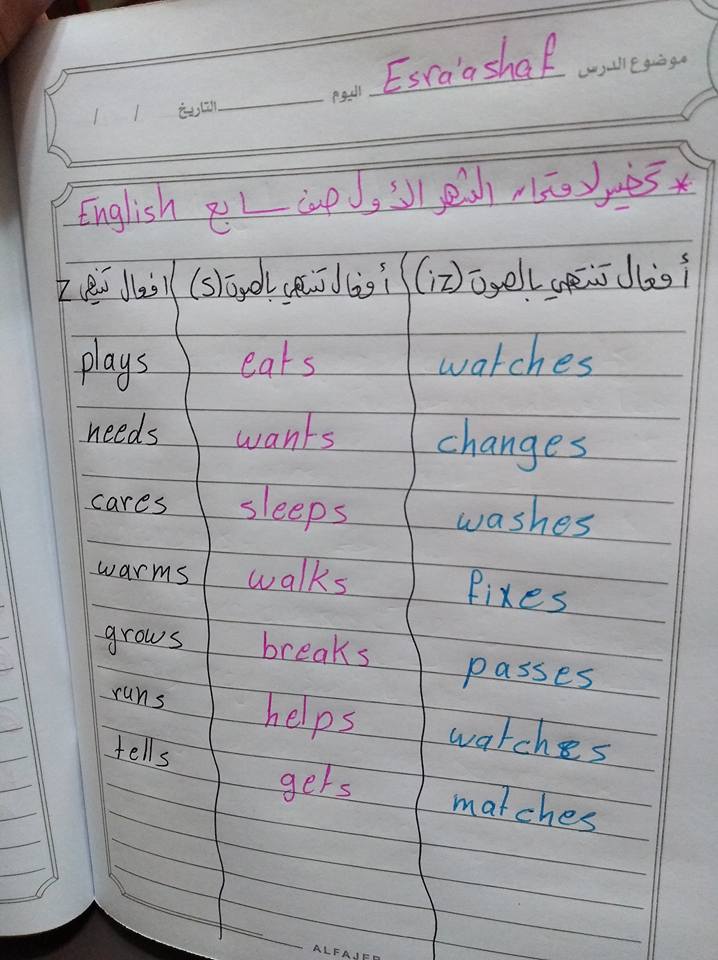 موضوع الدرس Esra'a shaf اليوم التاريخ / /
* تحضير لامتحان الشهر الأول صف سابع English
أفعال تنتهي بالصوت (iz) أفعال تنتهي بالصوت (s) افعال تنتهي z
plays eats watches
needs wants changes
cares sleeps washes
warms walks fixes
grows breaks passes
runs helps watches
tells gets matches
ALFAJER